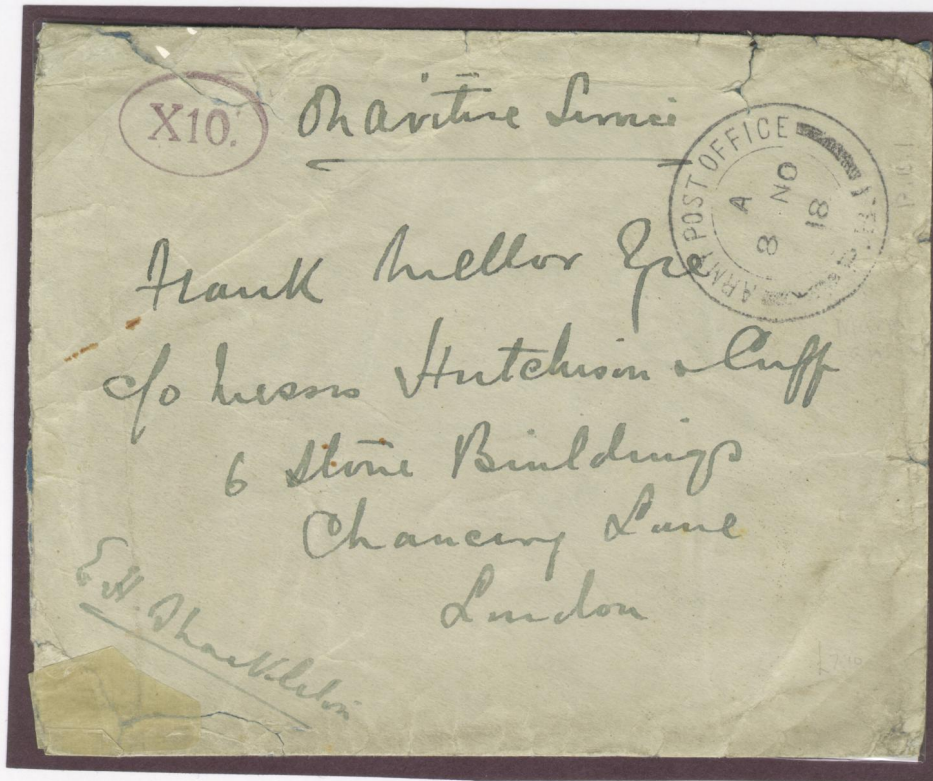 X10.
On Active Service
ARMY POST OFFICE
A
8 NO
18
Frank Mellor Esq
c/o Messrs Hutchison & Cuff
6 Stone Buildings
Chancery Lane
London
E. H. Shackleton